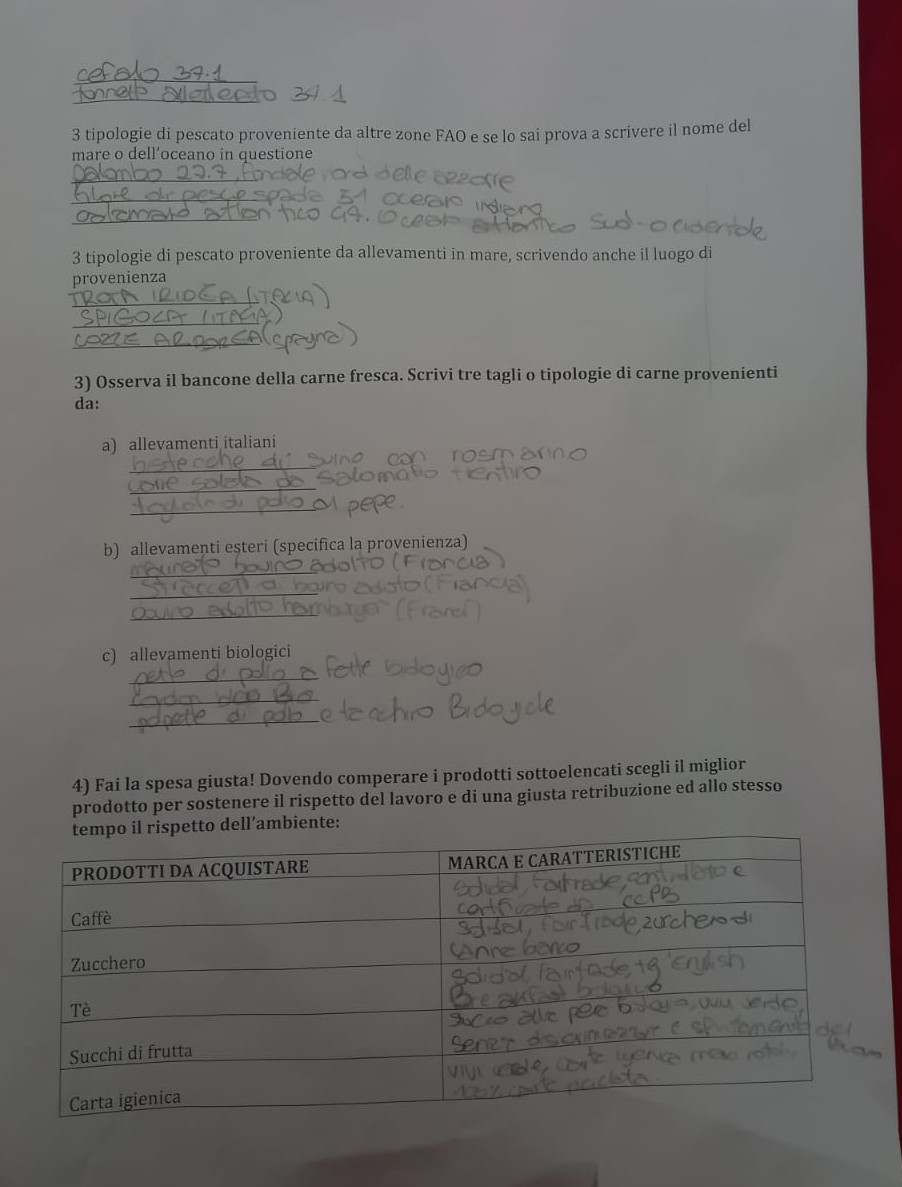 cefalo 37.1
tonnetto 37.1
3 tipologie di pescato proveniente da altre zone FAO e se lo sai prova a scrivere il nome del
mare o dell'oceano in questione
palombo 27.7, delle azzorre
filone di pesce spada 51 oceano indiano
calamaro atlantico 47. Oceano atlantico sud-occidentale
3 tipologie di pescato proveniente da allevamenti in mare, scrivendo anche il luogo di
provenienza
TROTA IRIDEA (ITALIA)
SPIGOLA (ITALIA)
COZZE (spagna)
3) Osserva il bancone della carne fresca. Scrivi tre tagli o tipologie di carne provenienti
da:
a) allevamenti italiani
bistecche di suino con rosmarino
carne salada trentino
di pollo al pepe.
b) allevamenti esteri (specifica la provenienza)
macinato bovino adulto (Francia)
straccetti di bovino adulto (Francia)
bovino adulto hamburger
c) allevamenti biologici
petto di pollo a fette biologico
Cordon bleu Bio
polpette di pollo e tacchino
4) Fai la spesa giusta! Dovendo comperare i prodotti sottoelencati scegli il miglior
prodotto per sostenere il rispetto del lavoro e di una giusta retribuzione ed allo stesso
tempo il rispetto dell'ambiente:
PRODOTTI DA ACQUISTARE
MARCA E CARATTERISTICHE
Caffè
Solidal, fairtrade, controllato e
certificato da CCPB
Zucchero
Solidal, fairtrade, zucchero di
canne
Tè
Solidal, fairtrade, English
Breakfast biologico
Succhi di frutta
Succo alle pere vivi verde,
senza e sfruttamento del
Carta igienica
vivi verde, carta igienica
100% carta